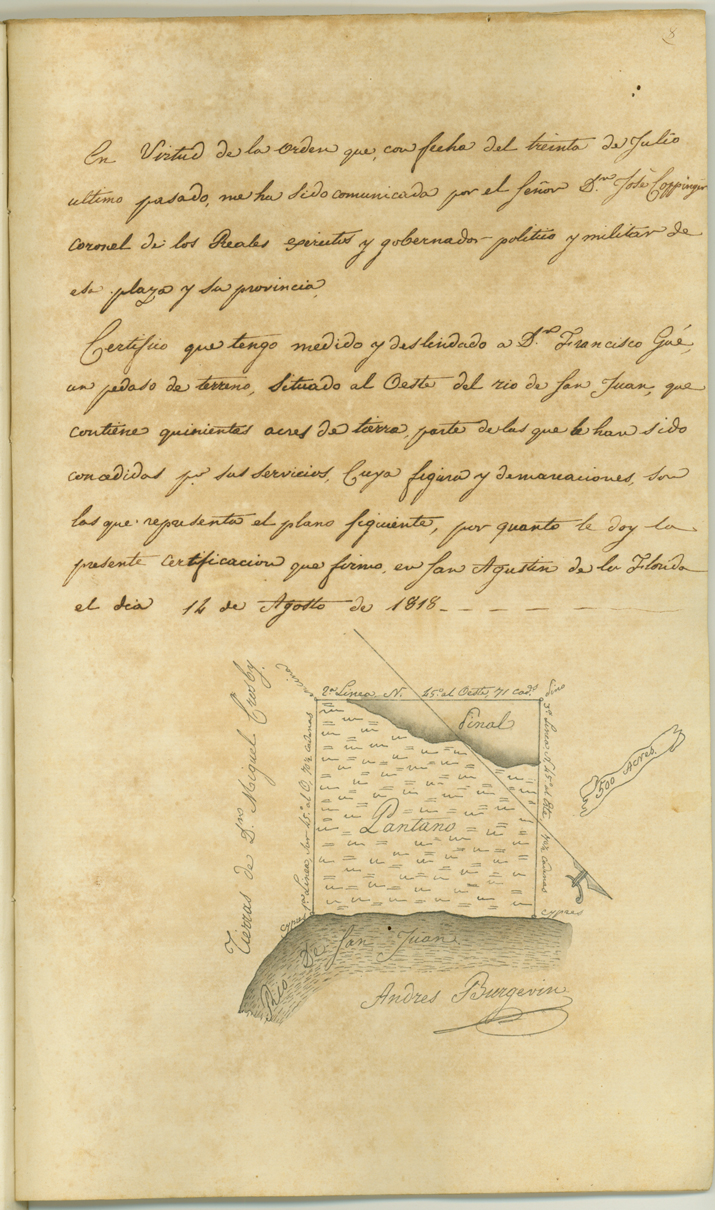 8
En Virtud de la Orden que, con fecha del treinta de Julio
ultimo pasado, me ha sido comunicada por el Señor Dn. José Coppinger
coronel de los Reales exercitos y gobernador politico y militar de
esa plaza y su provincia
Certifico que tengo medido y deslindado a Dn. Francisco Gué,
un pedaso de terreno, situado al Oeste del rio de San Juan, que
contiene quinientas acres de tierra, parte de las que le han sido
concedidas pr. sus servicios, Cuya figura y demarcaciones, son
las que representa el plano siguiente, por quanto le doy la
presente certificacion que firmo, en San Agustin de la Florida
el dia 14 de Agosto de 1818
2a. Linea N. 45°. al Oeste, 71 cads.
Pino
Pinal
500 Acres.
Tierras de Dn. Miguel Crosby.
Pantano
cypres
cypres
Rio De San Juan
Andres Burgevin